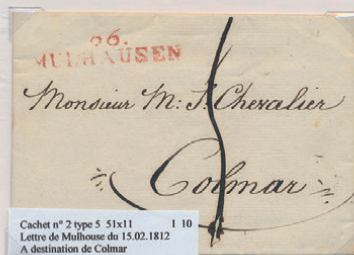 66.
MULHAUSEN
Monsieur M: S. Chevalier
Colmar
Cachet n° 2 type 5 51x11 I 10
Lettre de Mulhouse du 15.02.1812
A destination de Colmar